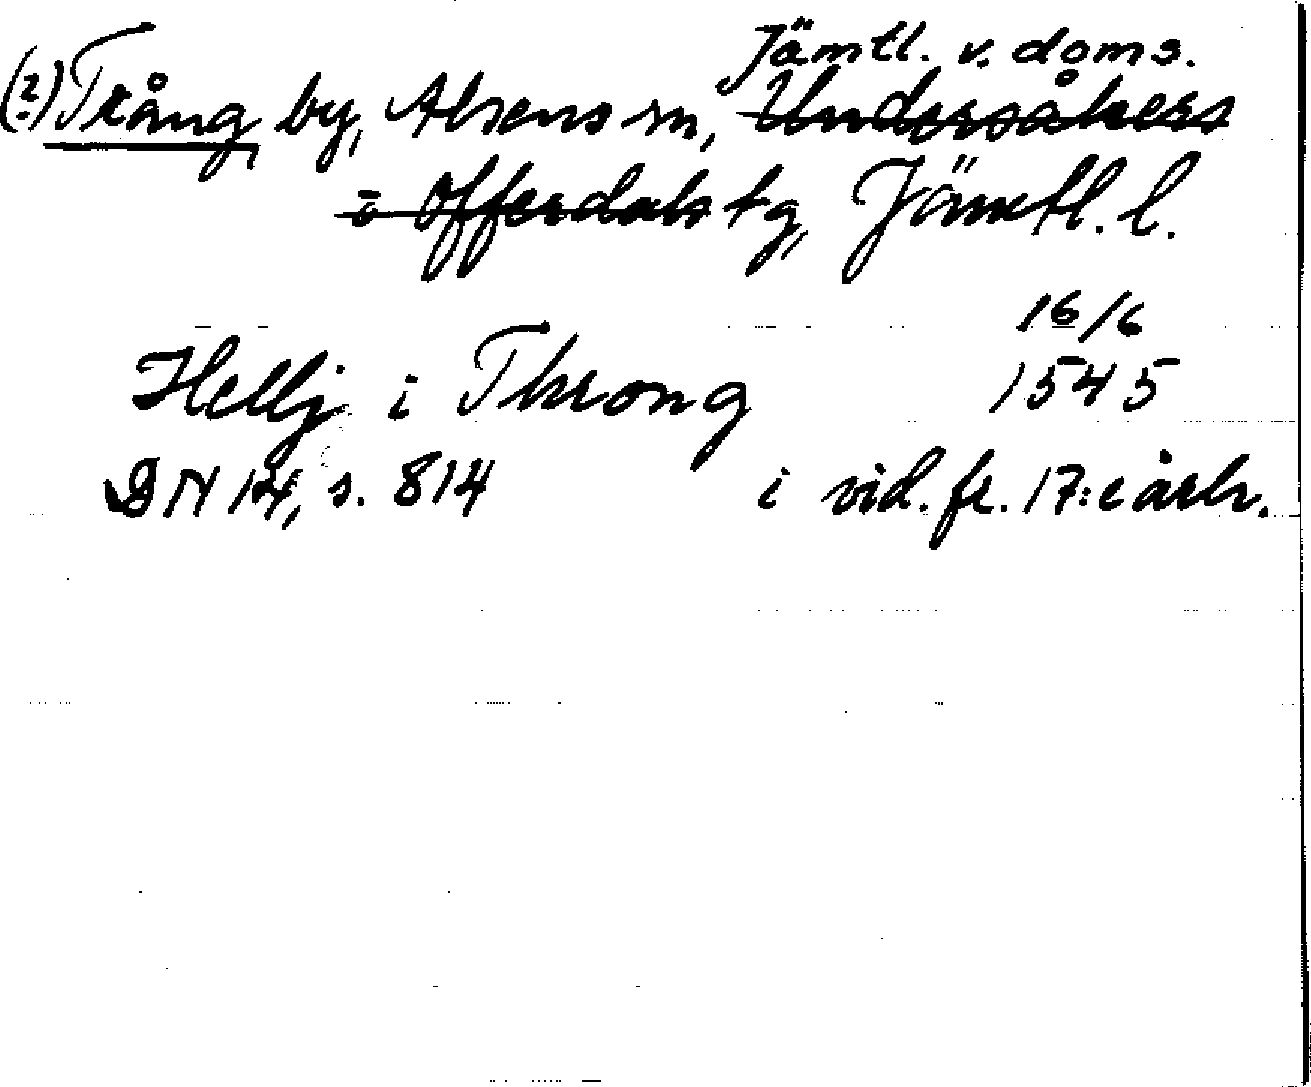 Jämtl. v. doms.
(?) Trång by, Alsens sn, Undersåkers
o Offerdals tg, Jämtl. l.
16/6
Hellj i Throng 1545
DN 14, s. 814 i vid. fr. 17:e årh.